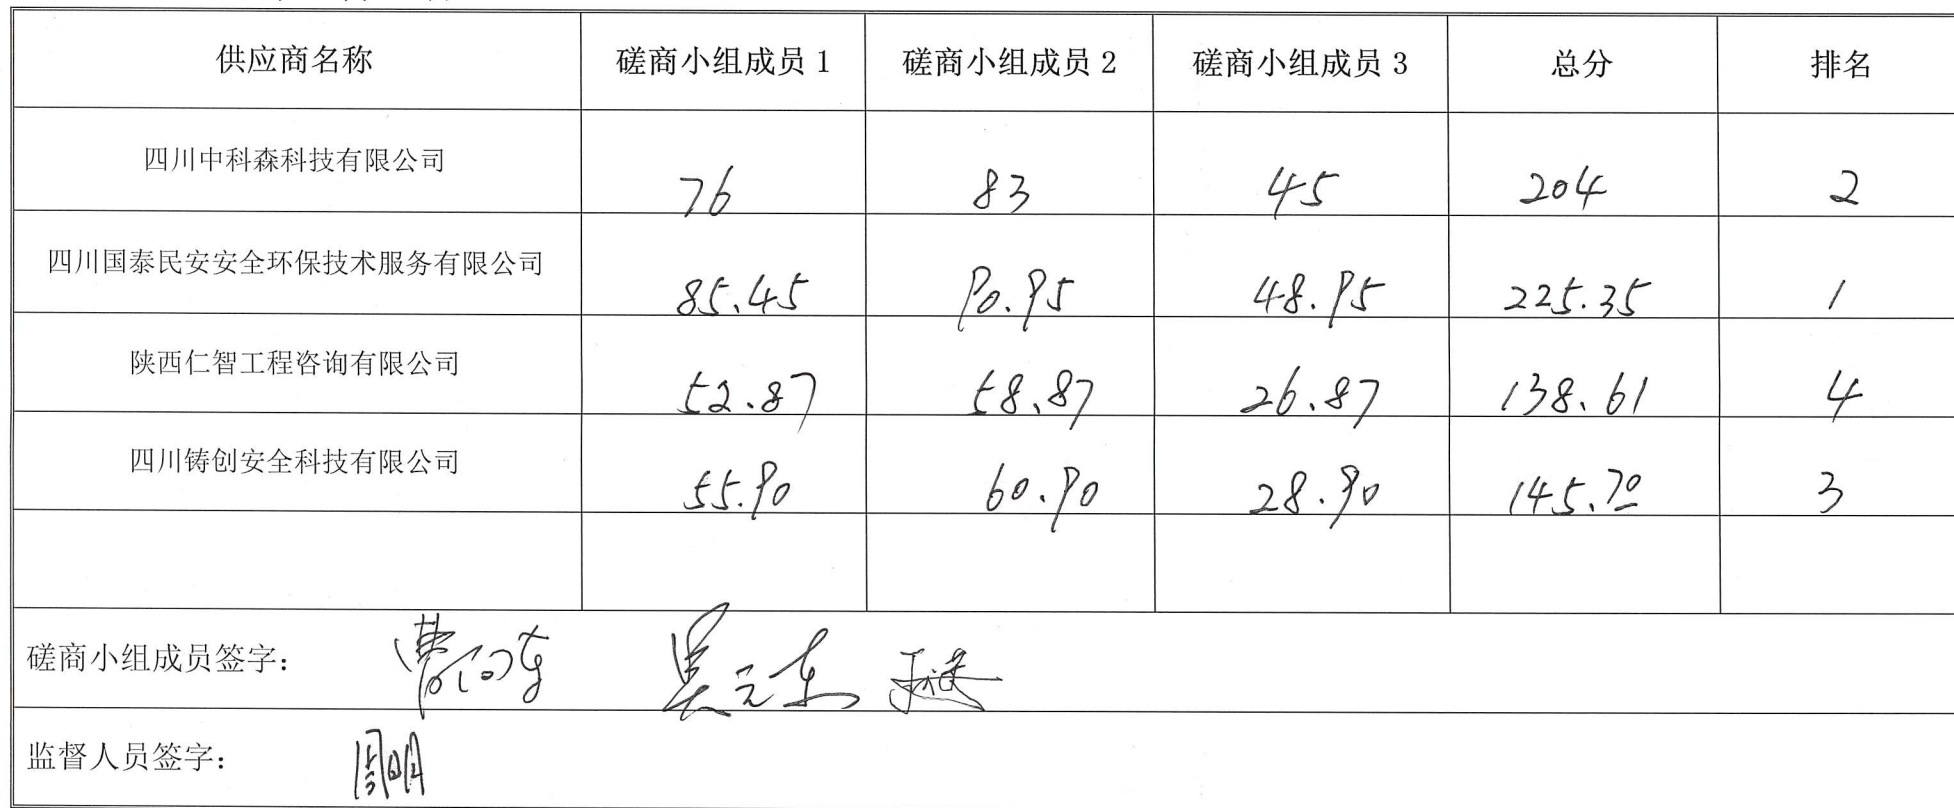 供应商名称 磋商小组成员 1 磋商小组成员 2 磋商小组成员 3 总分 排名
四川中科森科技有限公司 76 83 45 204 2
四川国泰民安安全环保技术服务有限公司 85.45 90.95 48.95 225.35 1
陕西仁智工程咨询有限公司 52.87 58.87 26.87 138.61 4
四川铸创安全科技有限公司 55.90 60.90 28.90 145.70 3
磋商小组成员签字： 吴元东
监督人员签字： 周明